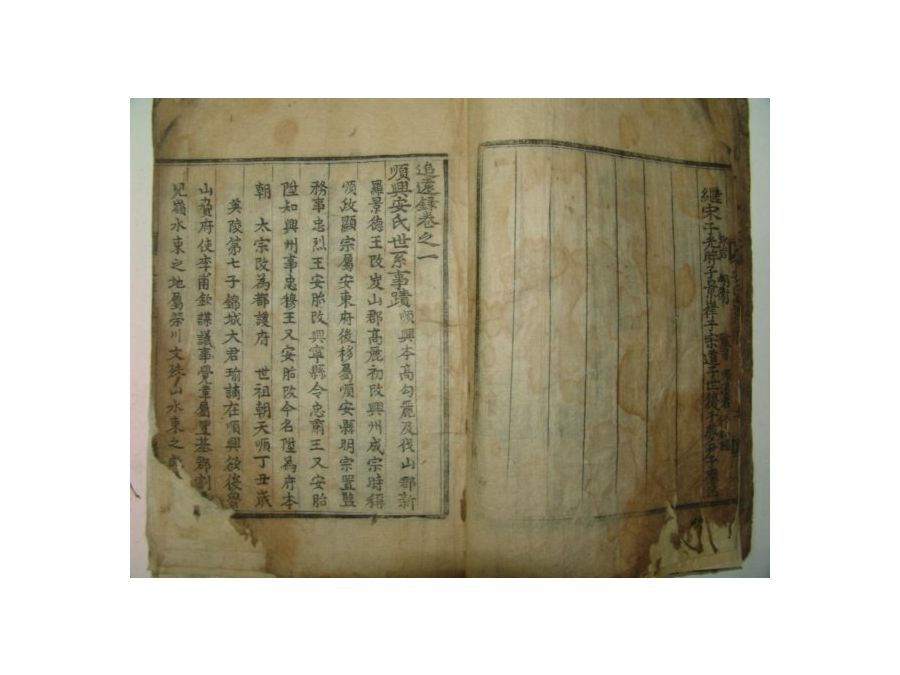 繼宋子光 子景祥子宗道子世
追遠録卷之一
順興安氏世系事蹟 順興本高勾麗及伐山郡新
羅景德王改岌山郡高麗初改興州成宗時稱
順政顯宗屬安東府後移屬順安縣明宗置監
務事忠烈王安胎改興寧縣令忠肅王又安胎
陞知興州事忠穆王又安胎改今名陞為府本
朝 太宗改為都護府 世祖朝天順丁丑歲
英陵第七子錦城大君瑜謫在順興欲復魯
山賚府使李甫欽謀議事覺革屬豊基郡割
見嶺水東之地屬榮川文殊山水東之